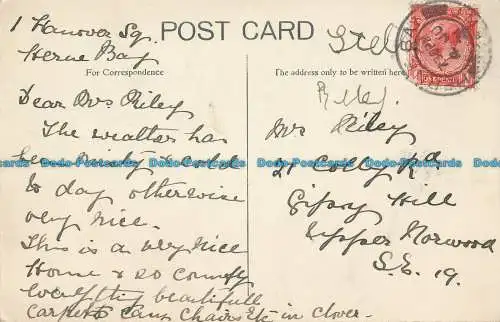 1 Hanover Sq.
Herne Bay
POST CARD
For Correspondence
The address only to be written here
Stell
Riley.
Dear Mrs Riley
The weather has
been & cold
to day otherwise
very nice.
This is a very nice
Home & so comfy
beautifull
carpets cane chairs Etc in clover.
Mrs Riley
21 Colby Rd
Gipsy Hill
Upper Norwood
S.E. 19.
ONE PENNY
Dodo-Postcards Dodo-Postcards Dodo-Postcards Dodo-Postcards